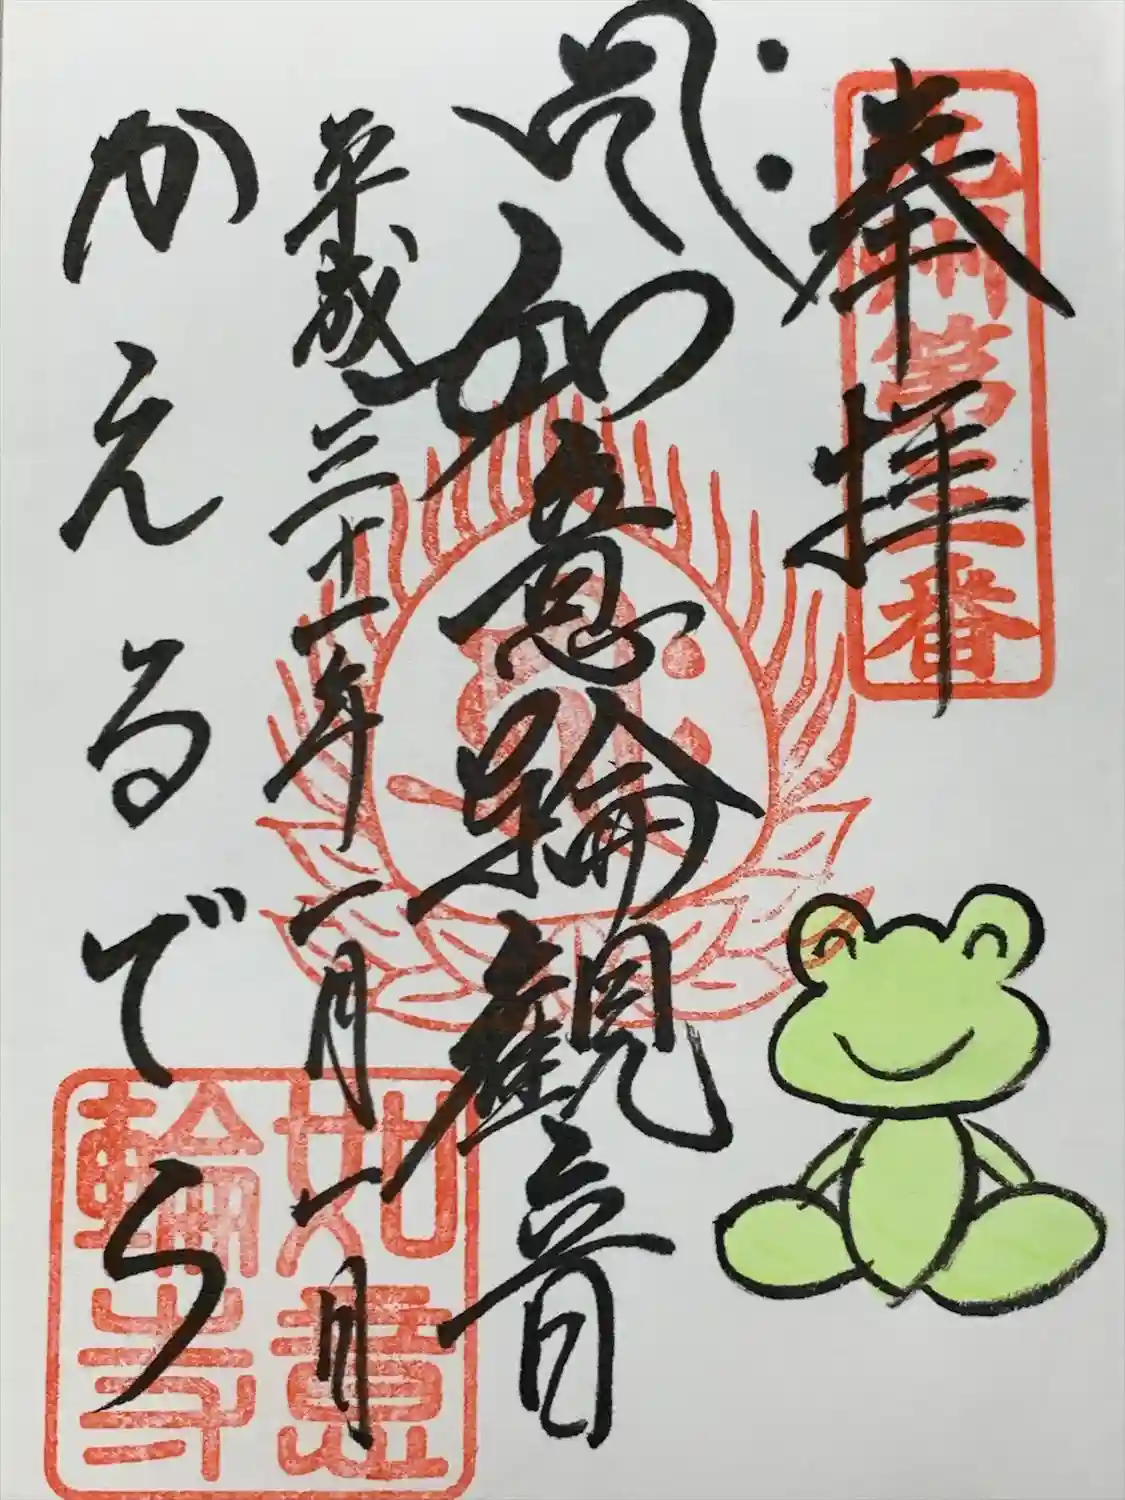 九州第三番
奉拝
如意輪観音
平成三十一年二月一日
かえるでら
如意
輪寺